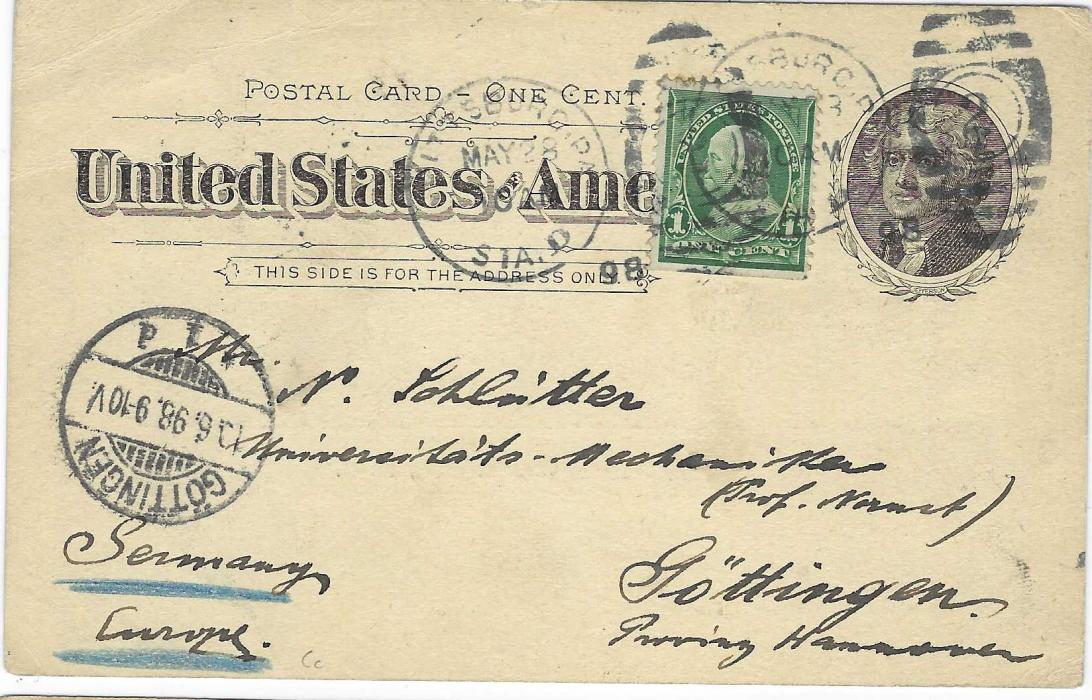 POSTAL CARD – ONE CENT.
United States of Ame
THIS SIDE IS FOR THE ADDRESS ONLY.
PITTSBURG, PA.
MAY 28
STA. D
98
UNITED STATES POSTAGE
1 1
ONE CENT
98
JEFFERSON
GÖTTINGEN
6.98.9-10V.
Mr.
N. Schlütter
Universitäts-Mechaniker
(Prof. Nernst)
Göttingen
Provinz Hannover
Germany
Europe.
Cc